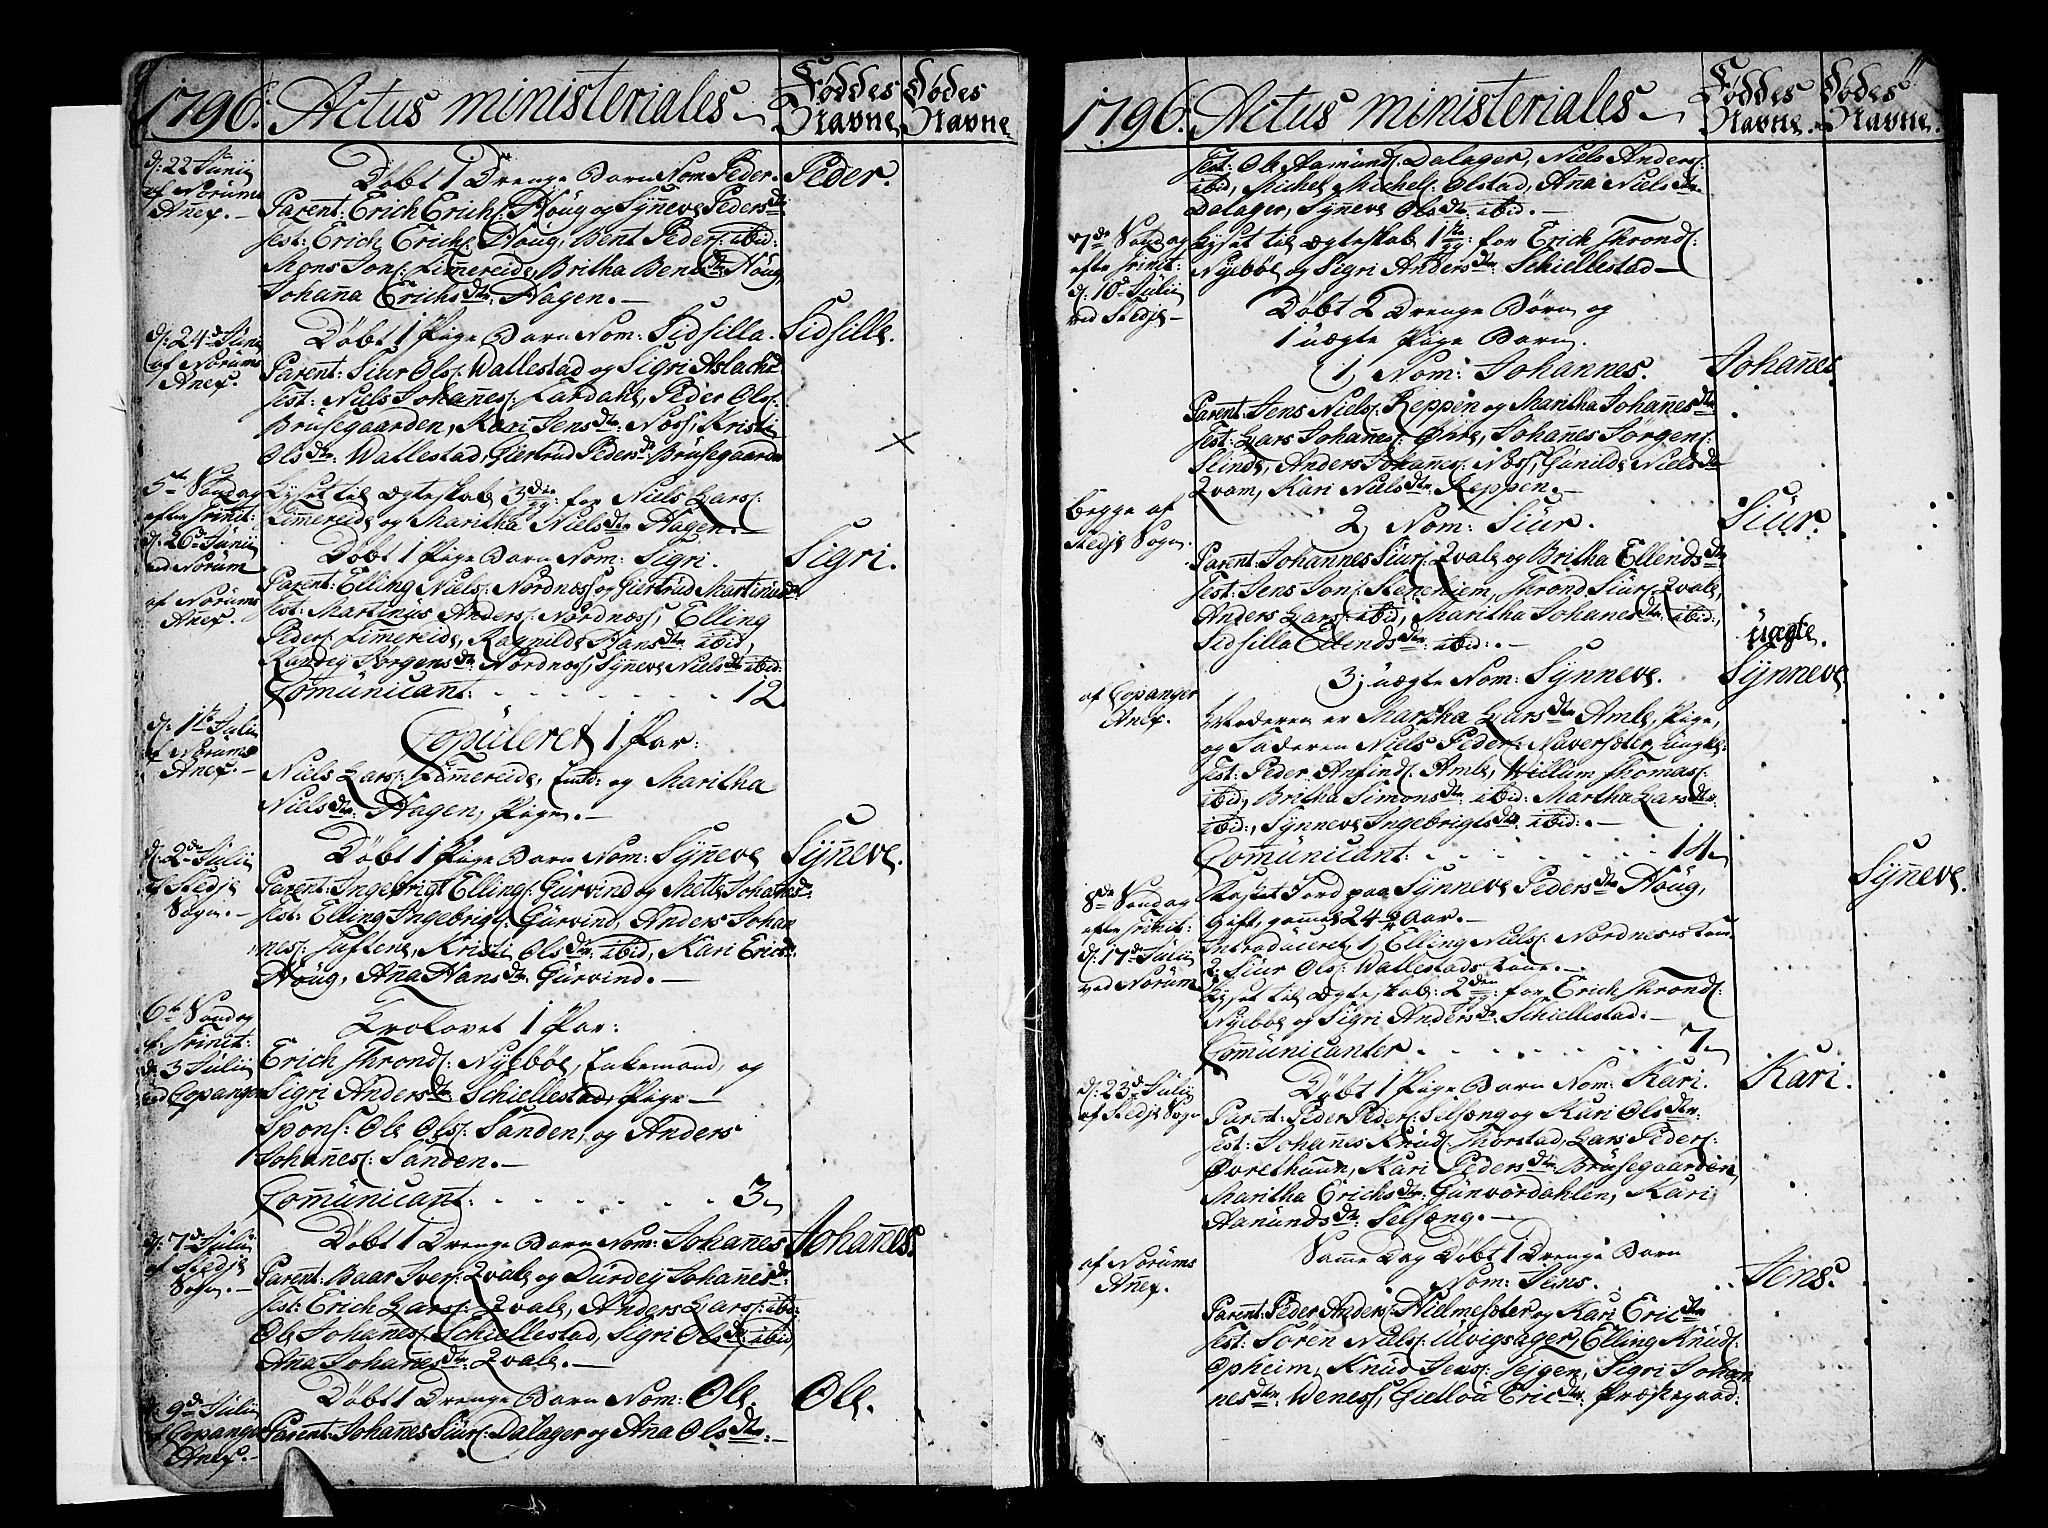 1796. Actus ministeriales Føddes Navne Dødes Navne
d: 22 Junii af Norums Anex.
Døbt 1 Drenge Barn Nom: Peder. Peder.
Parent: Erich Erichs: Houg og Synneve Peders dtr
Test: Erich Erichs: Houg, Bent Peders: ibid:
Mons Jons: Limereide, Britha Bents dtr Houg,
Johanna Erichs dtr: Hagen.
d: 24de Junii af Norums Anex.
Døbt 1 Pige Barn Nom: Sidsilla. Sidsille.
Parent: Siur Ols: Wallestad og Sigri Aslachs
Test: Niels Johannes: Lardahl, Peder Ols:
Brusegaarden, Kari Jens dtr: Noss, Kristi
Ols dtr: Wallestad, Giertrud Peders d: Brusegaarden
5te Søndag efter Trinit: d: 26 Junii ved Norum
Lyset til Ægteskab 3die gg: for Niels Lars:
Limereide og Maritha Niels dtr Hagen.
Døbt 1 Pige Barn Nom: Sigri. Sigri.
af Norums Anex.
Parent: Elling Niels: Nordnes og Giertrud Martinus d
Test: Martinus Anders: Nordness, Elling
Peders: Limereide, Ragnilde Hans dtr: ibid,
Randig Jørgens dtr: Nordnes, Synneve Niels dtr ibid:
Comunicant: 12
d: 1te Julii af Norums Anex.
Copuleret 1 Par:
Niels Lars: Limereide, Enk: og Maritha
Niels dtr: Hagen, Pige.
d: 2den Julii af Stedje Sogn.
Døbt 1 Pige Barn Nom: Synneve Synneve.
Parent: Ingebrigt Elling: Gurvind og Mette Johans d:
Test: Elling Ingebrigt: Gurvind, Anders Johan
nes: Tuftene, Kristi Ols dtr: ibid, Kari Erichs:
Houg, Ana Hans dtr: Gurvind.
6te Søndag e. Trinit: d. 3 Julii ved Copanger
Trolovet 1 Par:
Erich Thronds: Nyebøe, Enkemand, og
Sigri Anders dtr: Schiellestad, Pige
Spons: Ole Ols: Sanden, og Anders
Johanes: Sanden.
Comunicant: 3
d: 7de Julii af Stedje Sogn.
Døbt 1 Drenge Barn Nom: Johanes Johanes.
Parent: Baar Ivers: Qvale og Durdej Johanes d:
Test: Erich Lars: Qvale, Anders Lars: ibid:
Ole Johanes: Schiellestad, Sigri Ols dtr ibid,
Ana Johanes dtr: Qvale.
d. 9de Julii af Copanger Anex.
Døbt 1 Drenge Barn Nom: Ole. Ole.
Parent: Johanes Siurs: Dalager og Ana Ols dtr:
1796. Actus ministeriales Føddes Navne. Dødes Navne. 11
Test: Ole Aamunds: Dalager, Niels Anders:
ibid, Michel Michels: Olstad, Ana Niels dtr
Dalager, Synneve Ols dtr: ibid.
7de Søndag efter Trinit: d: 10de Julii ved Stedje
Lyset til Ægteskab 1te gg: for Erich Thronds:
Nyebøe og Sigri Anders dtr: Schiellestad
Døbt 2 Drenge Børn og
1 uægte Pige Barn.
1, Nom: Johannes. Johanes
Parent: Jens Niels: Reppen og Maritha Johanes dtr
Test: Lars Johanes: Øhre, Johanes Jørgens:
Slinde, Anders Johanes: Noss, Gunilde Niels dtr
Qvam, Kari Niels dtr: Reppen.
Begge af Stedje Sogn.
2, Nom: Siur. Siur.
Parent: Johannes Siurs: Qvale og Britha Ellends dtr
Test: Jens Jons: Steneniem, Thrond Siurs: Qvale,
Anders Lars: ibid, Maritha Johanes dtr: ibid:,
Sidsilla Ellends dtr: ibid:.
uægte.
3, uægte Nom: Synneve. Synneve
af Copanger Anex.
Moderen er Martha Lars dtr Amble, Pige,
og Faderen Niels Peders: Naversæter, ungk:
Test: Peder Anfinds: Amble, Willum Thomas:
ibid, Britha Simons dtr: ibid: Martha Lars dtr:
ibid:, Synneve Ingebrigts dtr: ibid:.
Comunicant: 14
8de Søndag efter Trinit: d: 17de Julii ved Norum
Kastet Jord paa Synneve Peders dtr Houg, Synneve.
Gift, gammel 24 Aar.
Introduceret 1, Elling Niels: Nordneses Kone
2, Siur Ols: Wallestads Kone.
Lyset til Ægteskab: 2den gg: for Erich Thronds:
Nyebøe og Sigri Anders dtr: Schiellestad.
Comunicanter 7
d: 23de Julii af Stedje Sogn
Døbt 1 Pige Barn Nom: Kari. Kari.
Parent: Peder Peders: Selseng og Kari Ols dtr.
Test: Johanes Knuds: Thorstad, Lars Peders:
Øvrethuun, Kari Peders dtr: Brusegaarden,
Maritha Erichs dtr: Gunvordahlen, Kari
Aamunds dtr: Selseng.
Samme Dag Døbt 1 Drenge Barn
af Norums Anex.
Nom: Jens. Jens.
Parent: Peder Anders: Hielmesæter og Kari Eric dtr
Test: Søren Niels: Ulvigsager, Elling Knuds:
Opheim, Knud Jens: Tejgen, Sigri Johan
nes dtr: Weness, Giellou Eric dtr: Præstegaard.